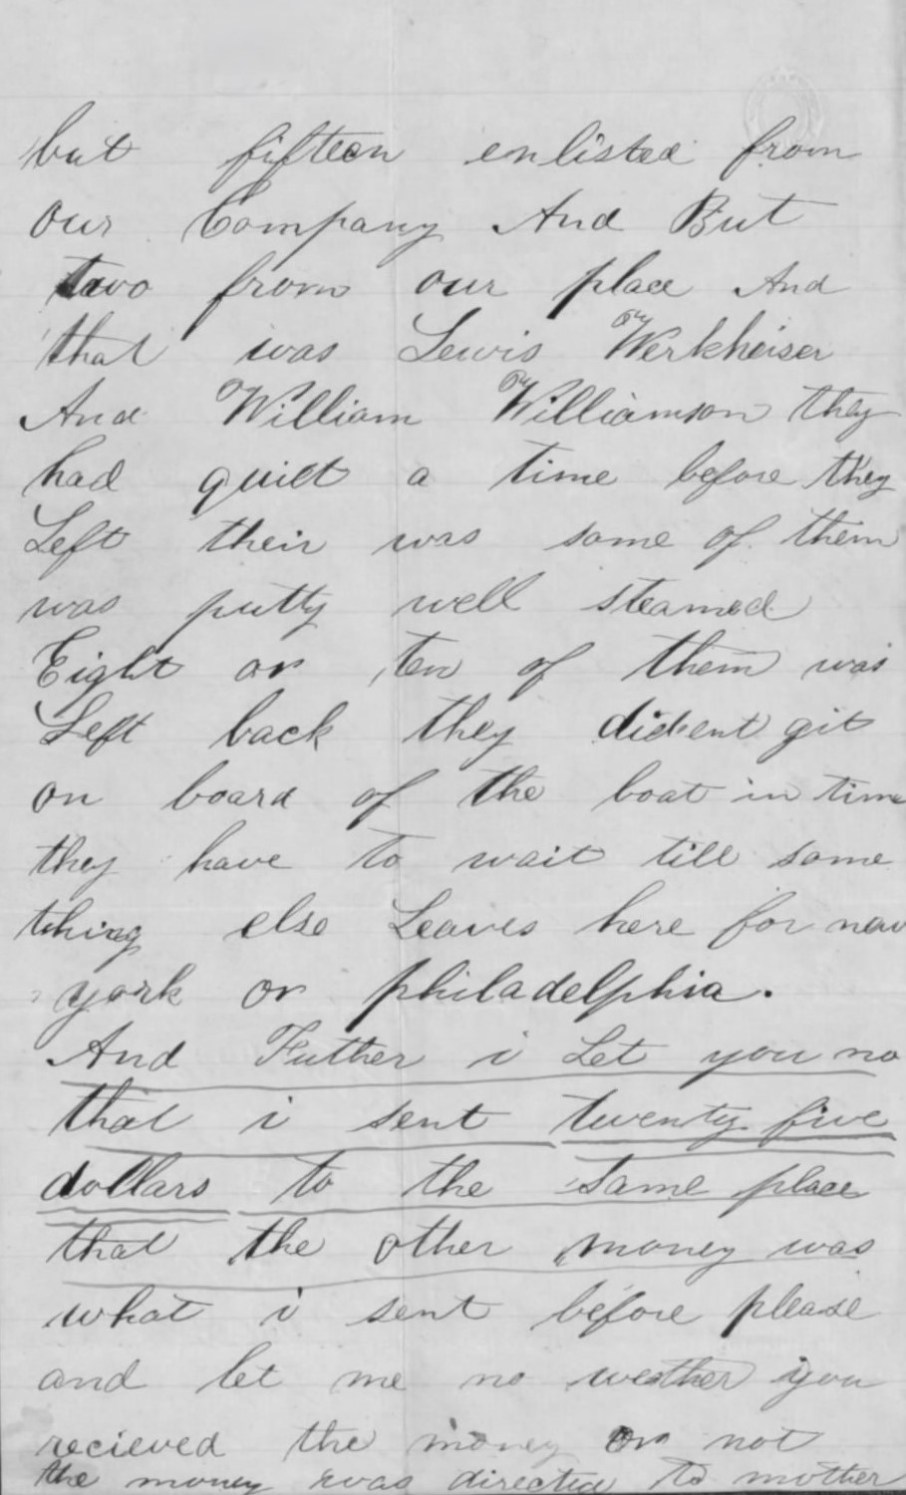 but fifteen enlisted from
our Company And But
two from our place And
that was Lewis Werkheiser
And William Williamson they
had quiet a time before they
Left their was some of them
was putty well steamed
Eight or ten of them was
Left back they dident git
on board of the boat in time
they have to wait till some
thing else Leaves here for new
york or philadelphia.
And Futher i Let you no
that i sent twenty five
dollars to the same place
that the other money was
what i sent before please
and let me no weather you
recieved the money or not
the money was directed to mother